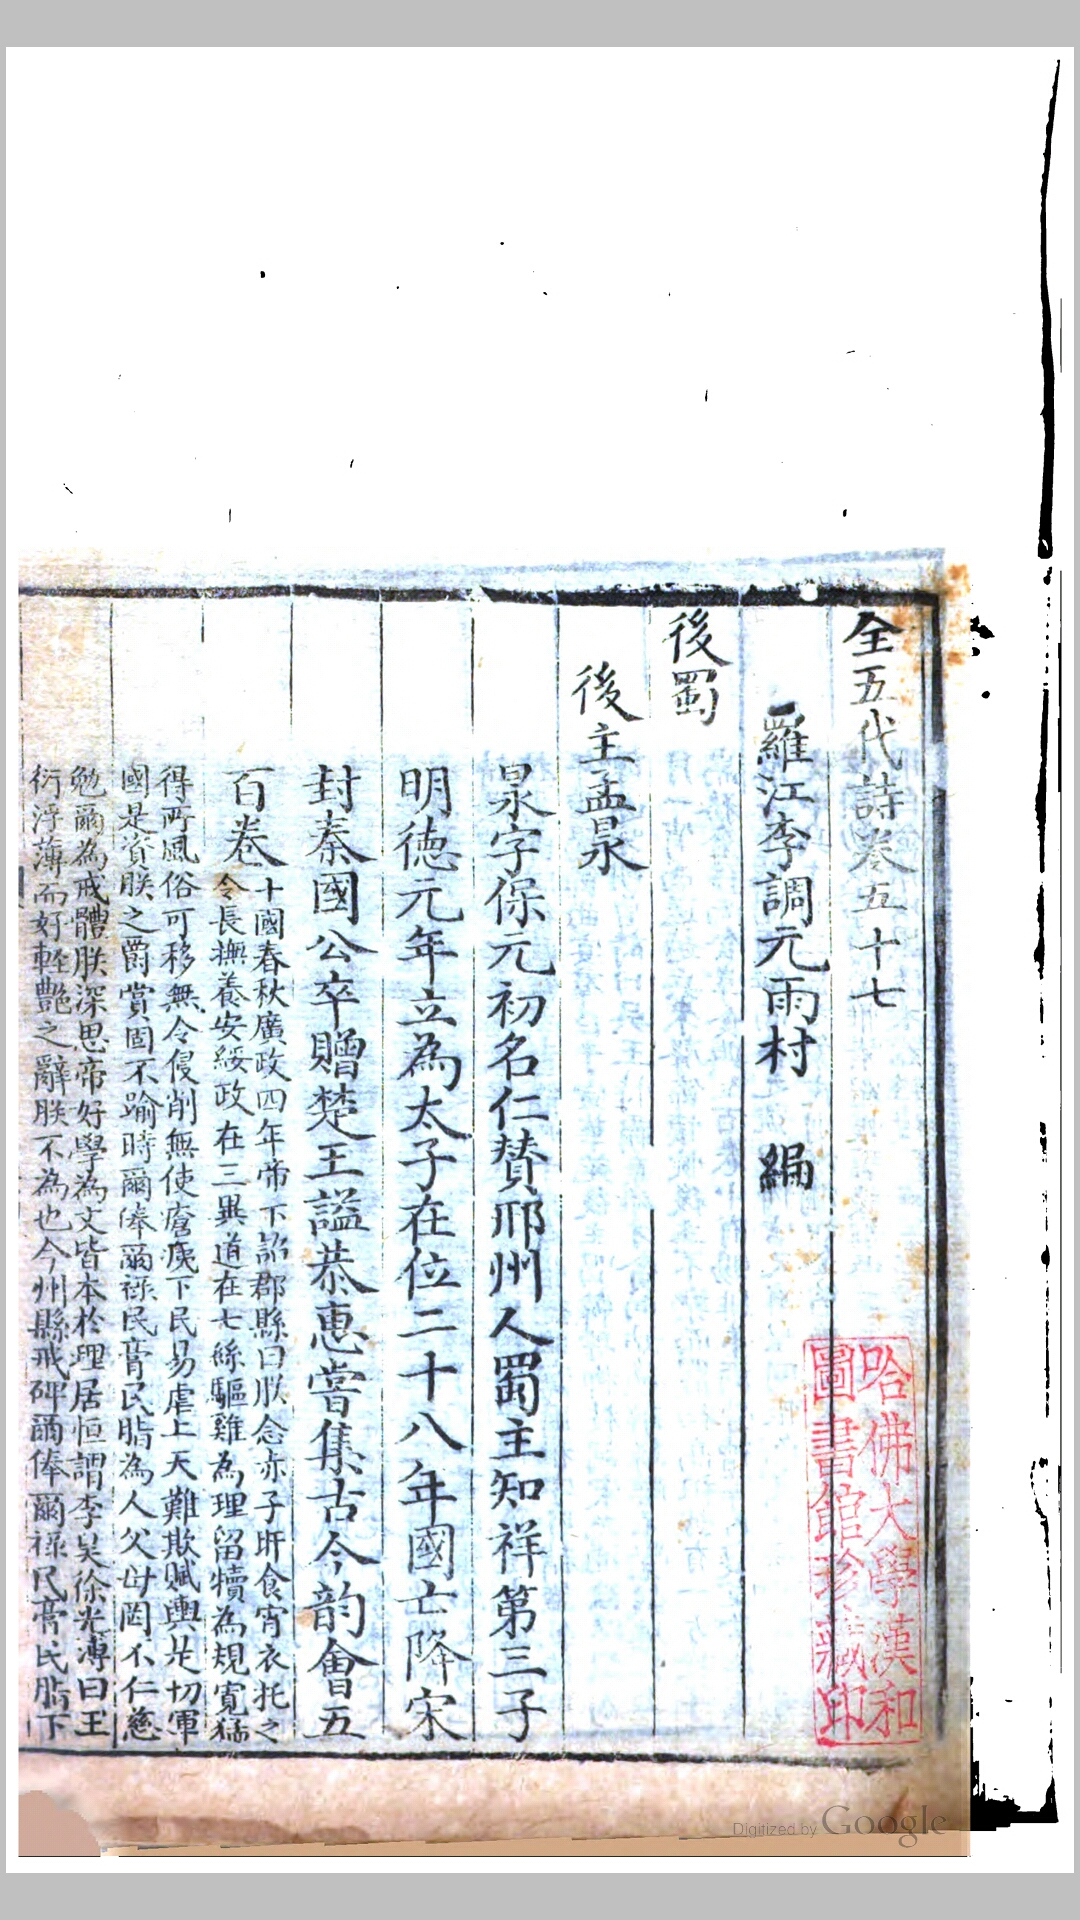 全五代詩卷五十七
羅江李調元雨村 編
後蜀
後主孟昶
昶字保元初名仁贊邢州人蜀主知祥第三子
明德元年立為太子在位二十八年國亡降宋
封秦國公卒贈楚王謚恭惠嘗集古今韵會五
百卷
十國春秋廣政四年帝下詔郡縣曰朕念赤子旰食宵衣托之
令長撫養安綏政在三異道在七絲驅雞為理留犢為規寬猛
得所風俗可移無令侵削無使瘡痍下民易虐上天難欺賦輿是切軍
國是資朕之爵賞固不踰時爾俸爾祿民膏民脂為人父母罔不仁慈
勉爾為戒體朕深思帝好學為文皆本於理居恒謂李昊徐光溥曰王
衍浮薄而好輕艷之辭朕不為也今州縣戒碑爾俸爾祿民膏民脂下
哈佛大學漢和
圖書館珍藏印
Digitized by Google